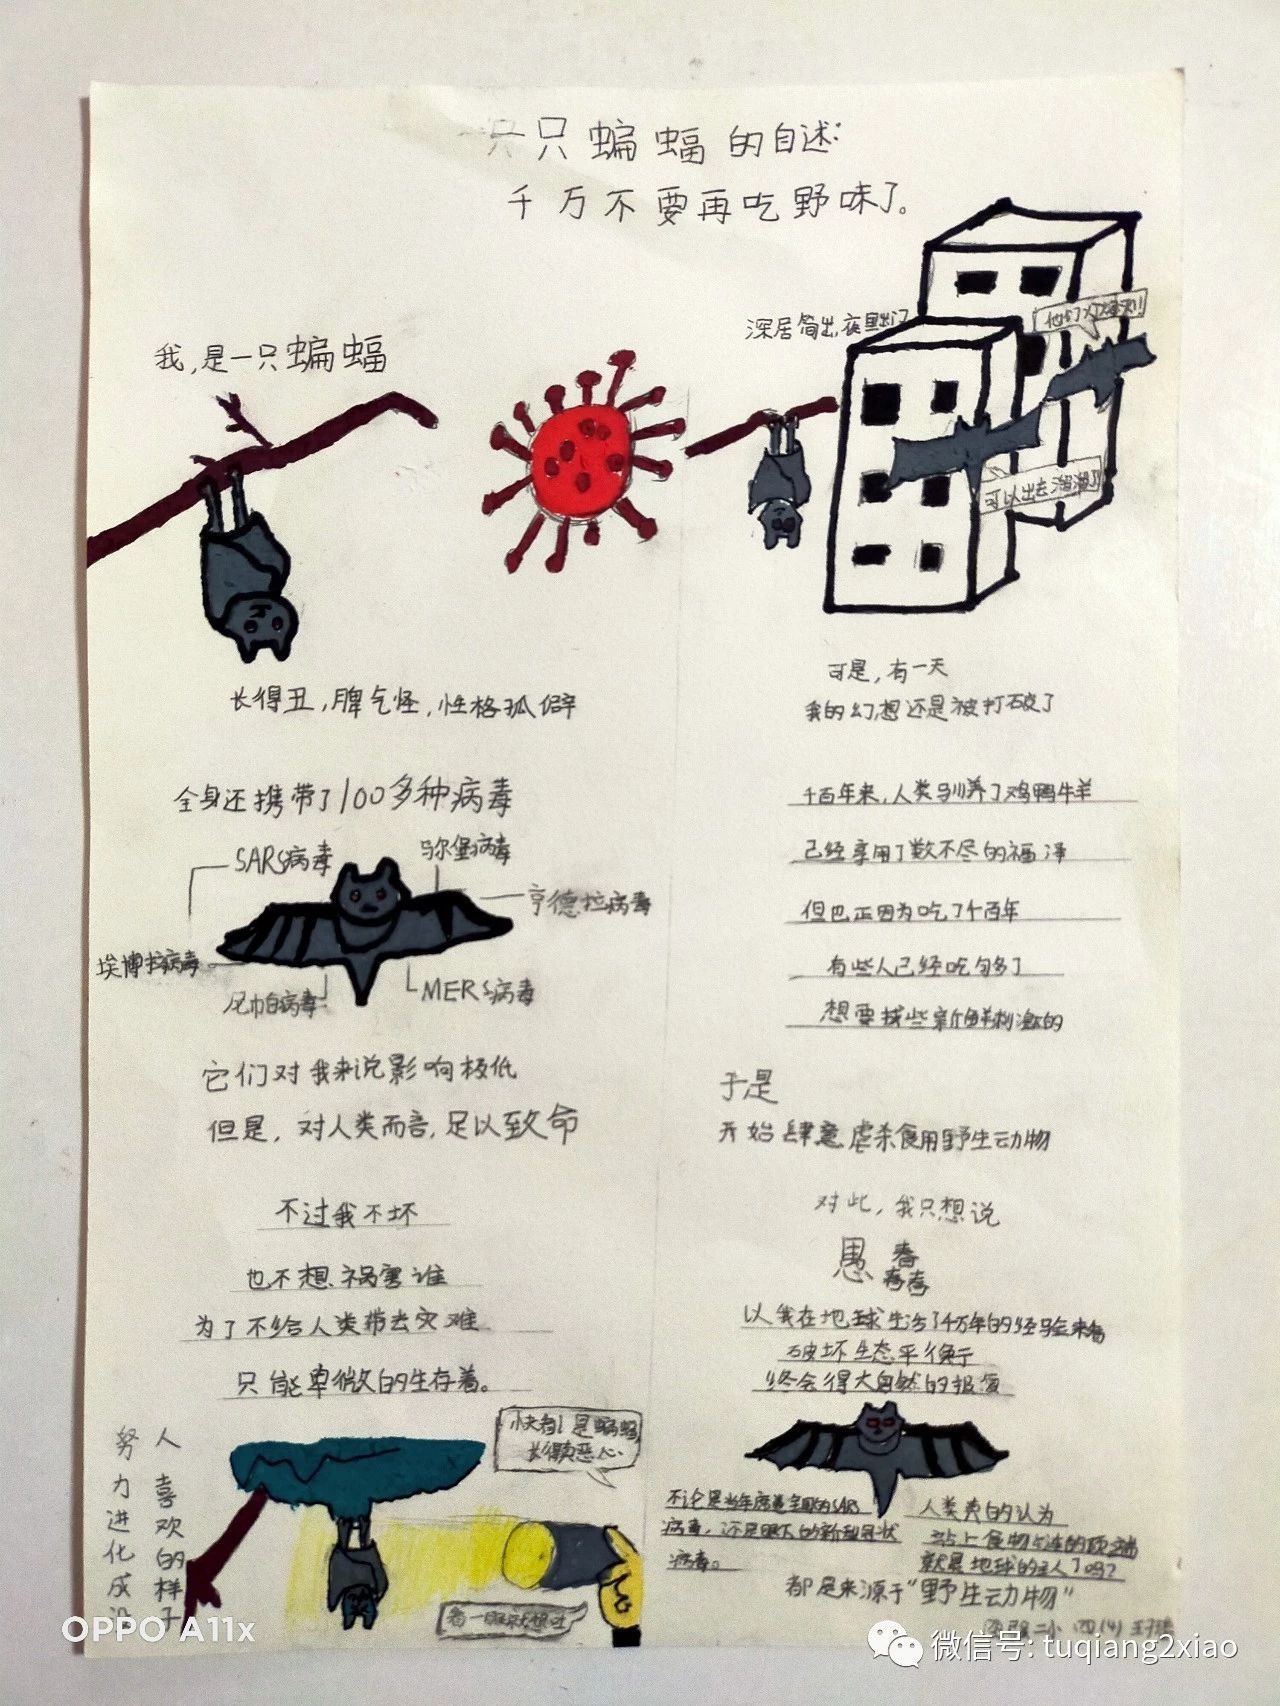 一只蝙蝠的自述:
千万不要再吃野味了。
我,是一只蝙蝠
长得丑,脾气怪,性格孤僻
全身还携带了100多种病毒
SARS病毒
马尔堡病毒
亨德拉病毒
埃博拉病毒
尼帕病毒
MERS病毒
它们对我来说影响极低
但是,对人类而言,足以致命
不过我不坏
也不想祸害谁
为了不给人类带去灾难
只能卑微的生存着。
努力进化成没
人喜欢的样子
快看!是蝙蝠
长得真恶心
看一眼就想吐
深居简出,夜里出门
可以出去溜溜了
可是,有一天
我的幻想还是被打破了
千百年来,人类驯养了鸡鸭牛羊
已经享用了数不尽的福泽
但也正因为吃了千百年
有些人已经吃够了
想要找些新鲜刺激的
于是
开始肆意虐杀食用野生动物
对此,我只想说
愚蠢
以我在地球生活了4万年的经验来看
破坏生态平衡
终会得大自然的报复
不论是当年席卷全国的SARS
病毒,还是眼下的新型冠状
病毒。
人类真的认为
站上食物链的顶端
就是地球的主人了吗?
都是来源于“野生动物”
OPPO A11x
微信号: tuqiang2xiao